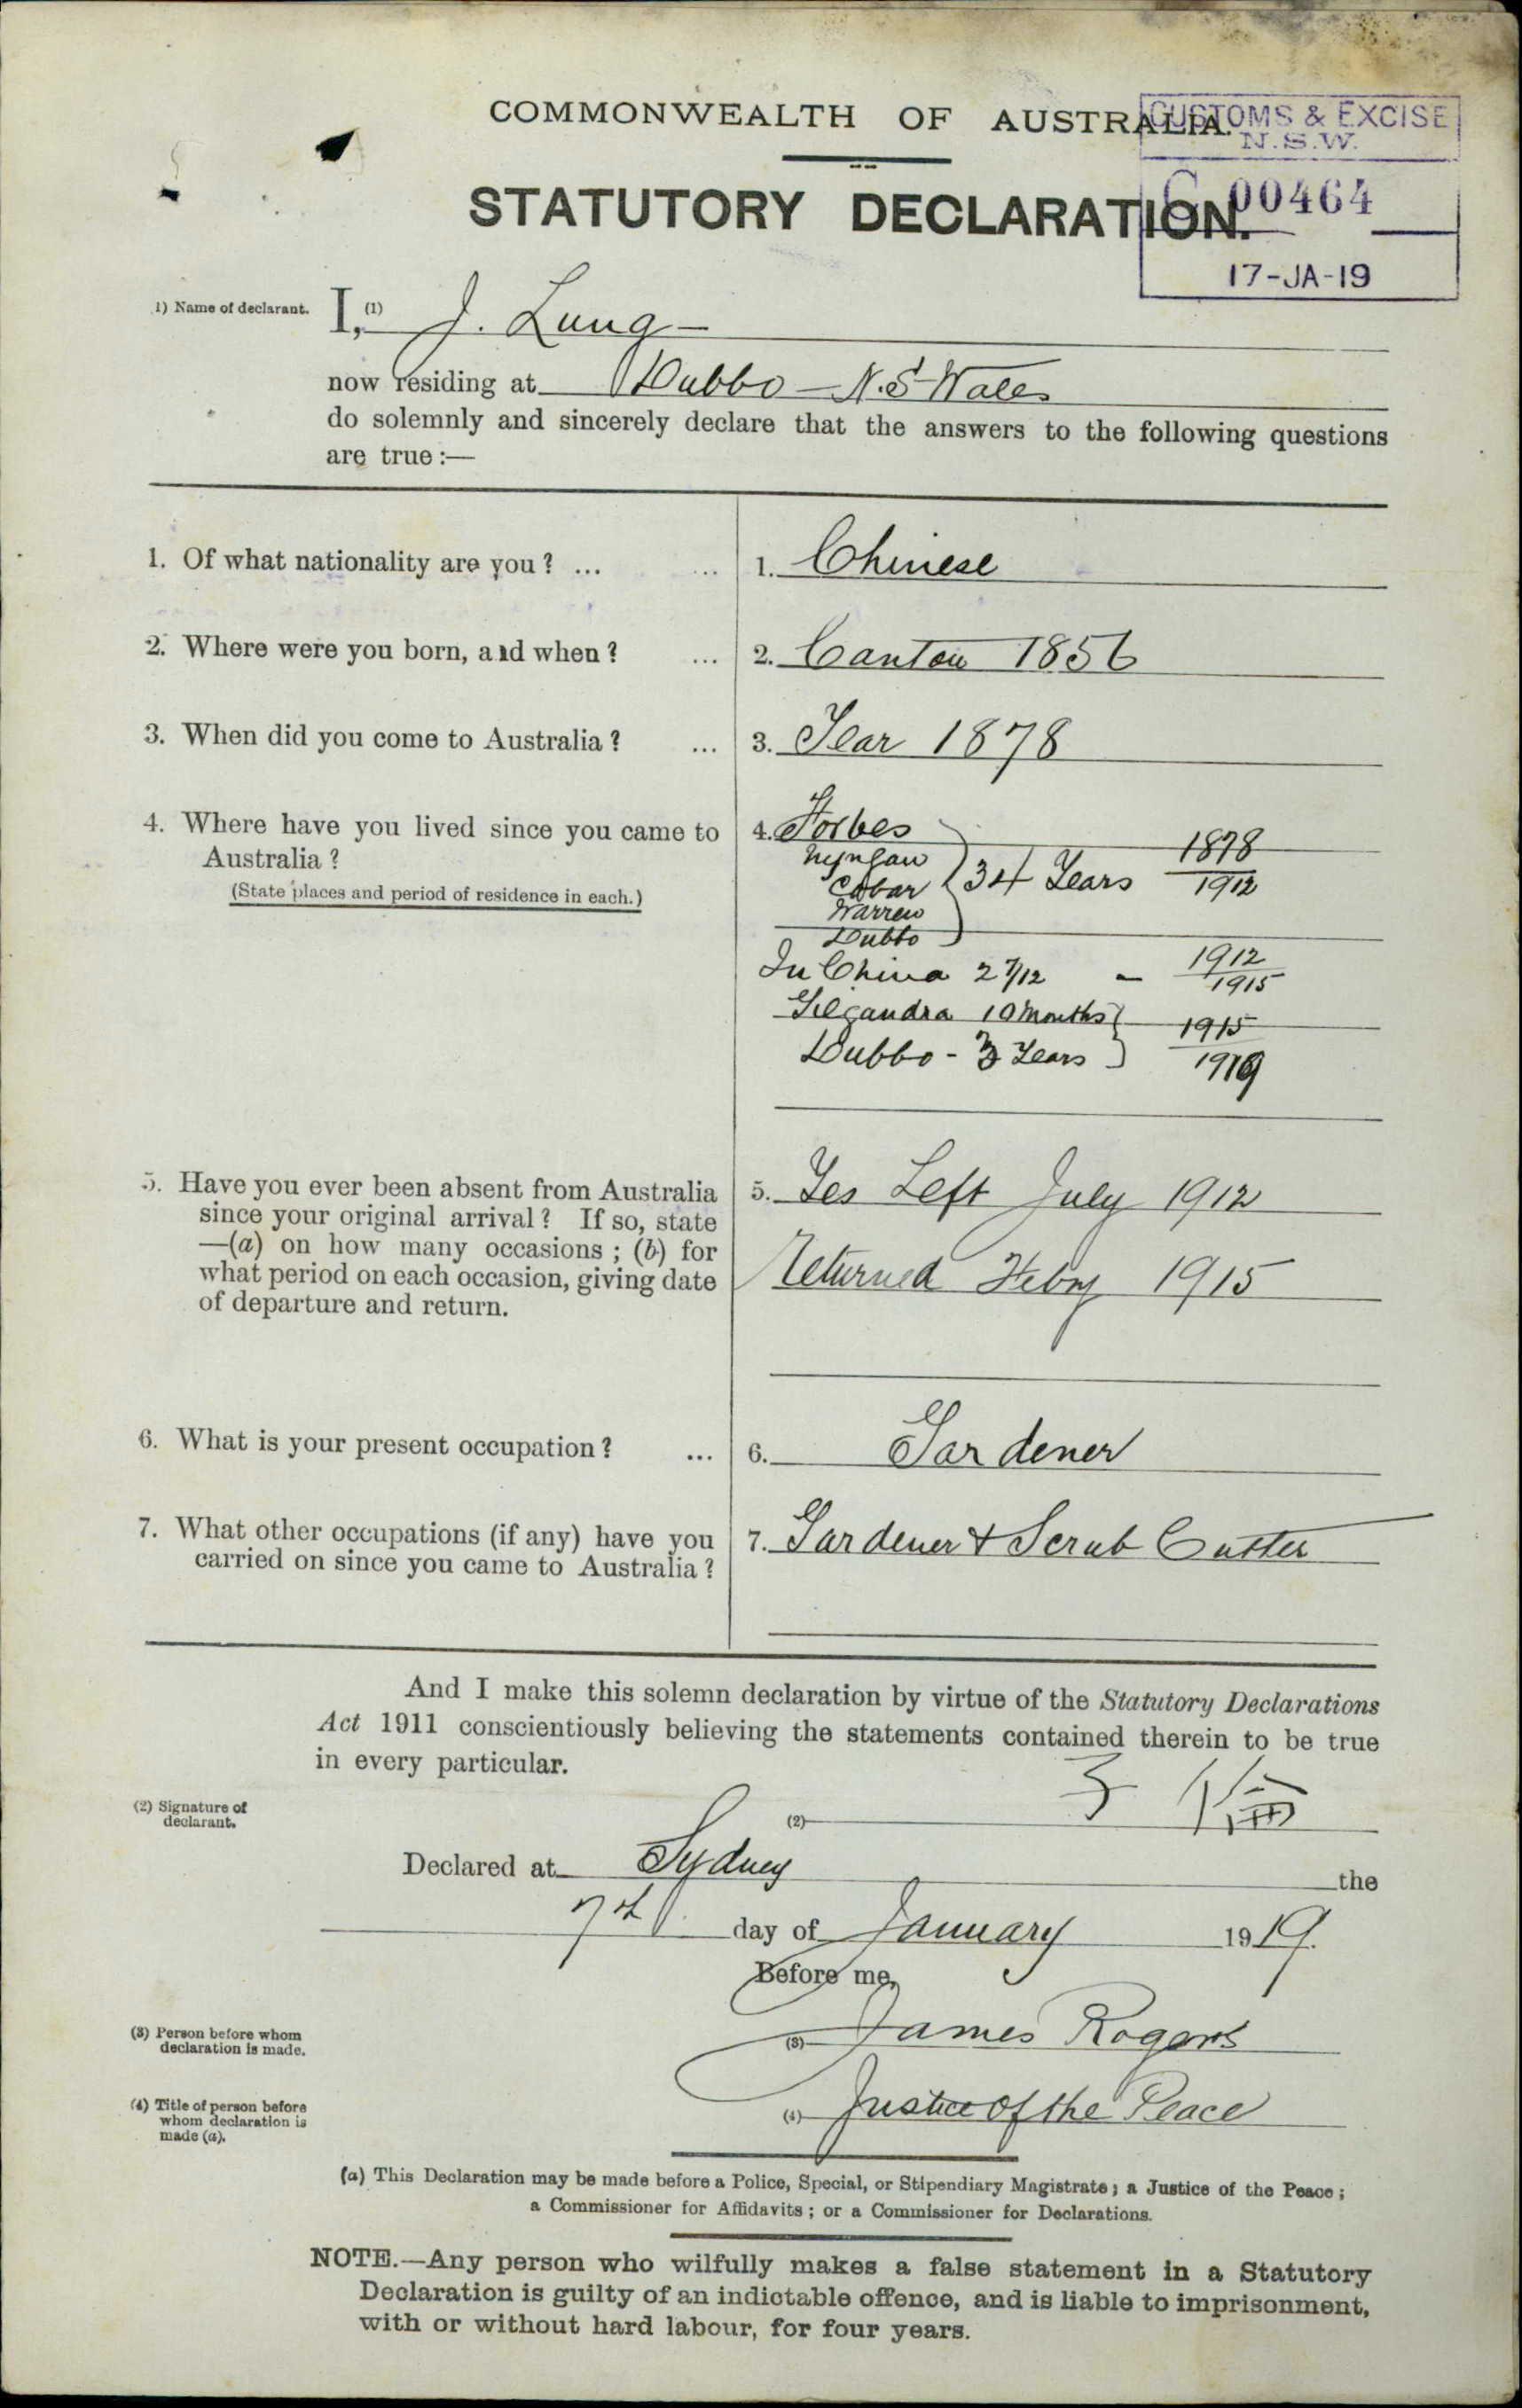 COMMONWEALTH OF AUSTRALIA.
CUSTOMS & EXCISE
N.S.W.
STATUTORY DECLARATION.
C 00464
17-JA-19
1) Name of declarant.
I, (1) J. Lung
now residing at Dubbo - N.S Wales
do solemnly and sincerely declare that the answers to the following questions
are true :—
1. Of what nationality are you ? ... ... 1. Chinese
2. Where were you born, and when ? ... 2. Canton 1856
3. When did you come to Australia ? ... 3. Year 1878
4. Where have you lived since you came to
Australia ?
(State places and period of residence in each.)
4. Forbes
Nyngan
Cobar
Warren
Dubbo
34 Years 1878
1912
In China 2 7/12 - 1912
1915
Gilgandra 10 months 1915
Dubbo - 3 Years 1919
5. Have you ever been absent from Australia
since your original arrival ? If so, state
—(a) on how many occasions ; (b) for
what period on each occasion, giving date
of departure and return.
5. Yes Left July 1912
Returned Feby 1915
6. What is your present occupation ? ... 6. Gardener
7. What other occupations (if any) have you
carried on since you came to Australia ?
7. Gardener & Scrub Cutter
And I make this solemn declaration by virtue of the Statutory Declarations
Act 1911 conscientiously believing the statements contained therein to be true
in every particular.
(2) Signature of
declarant.
(2) 子 倫
Declared at Sydney the
7th day of January 1919.
Before me,
(3) Person before whom
declaration is made.
(3) James Rogers
(4) Title of person before
whom declaration is
made (a).
(4) Justice of the Peace
(a) This Declaration may be made before a Police, Special, or Stipendiary Magistrate ; a Justice of the Peace ;
a Commissioner for Affidavits ; or a Commissioner for Declarations.
NOTE.—Any person who wilfully makes a false statement in a Statutory
Declaration is guilty of an indictable offence, and is liable to imprisonment,
with or without hard labour, for four years.